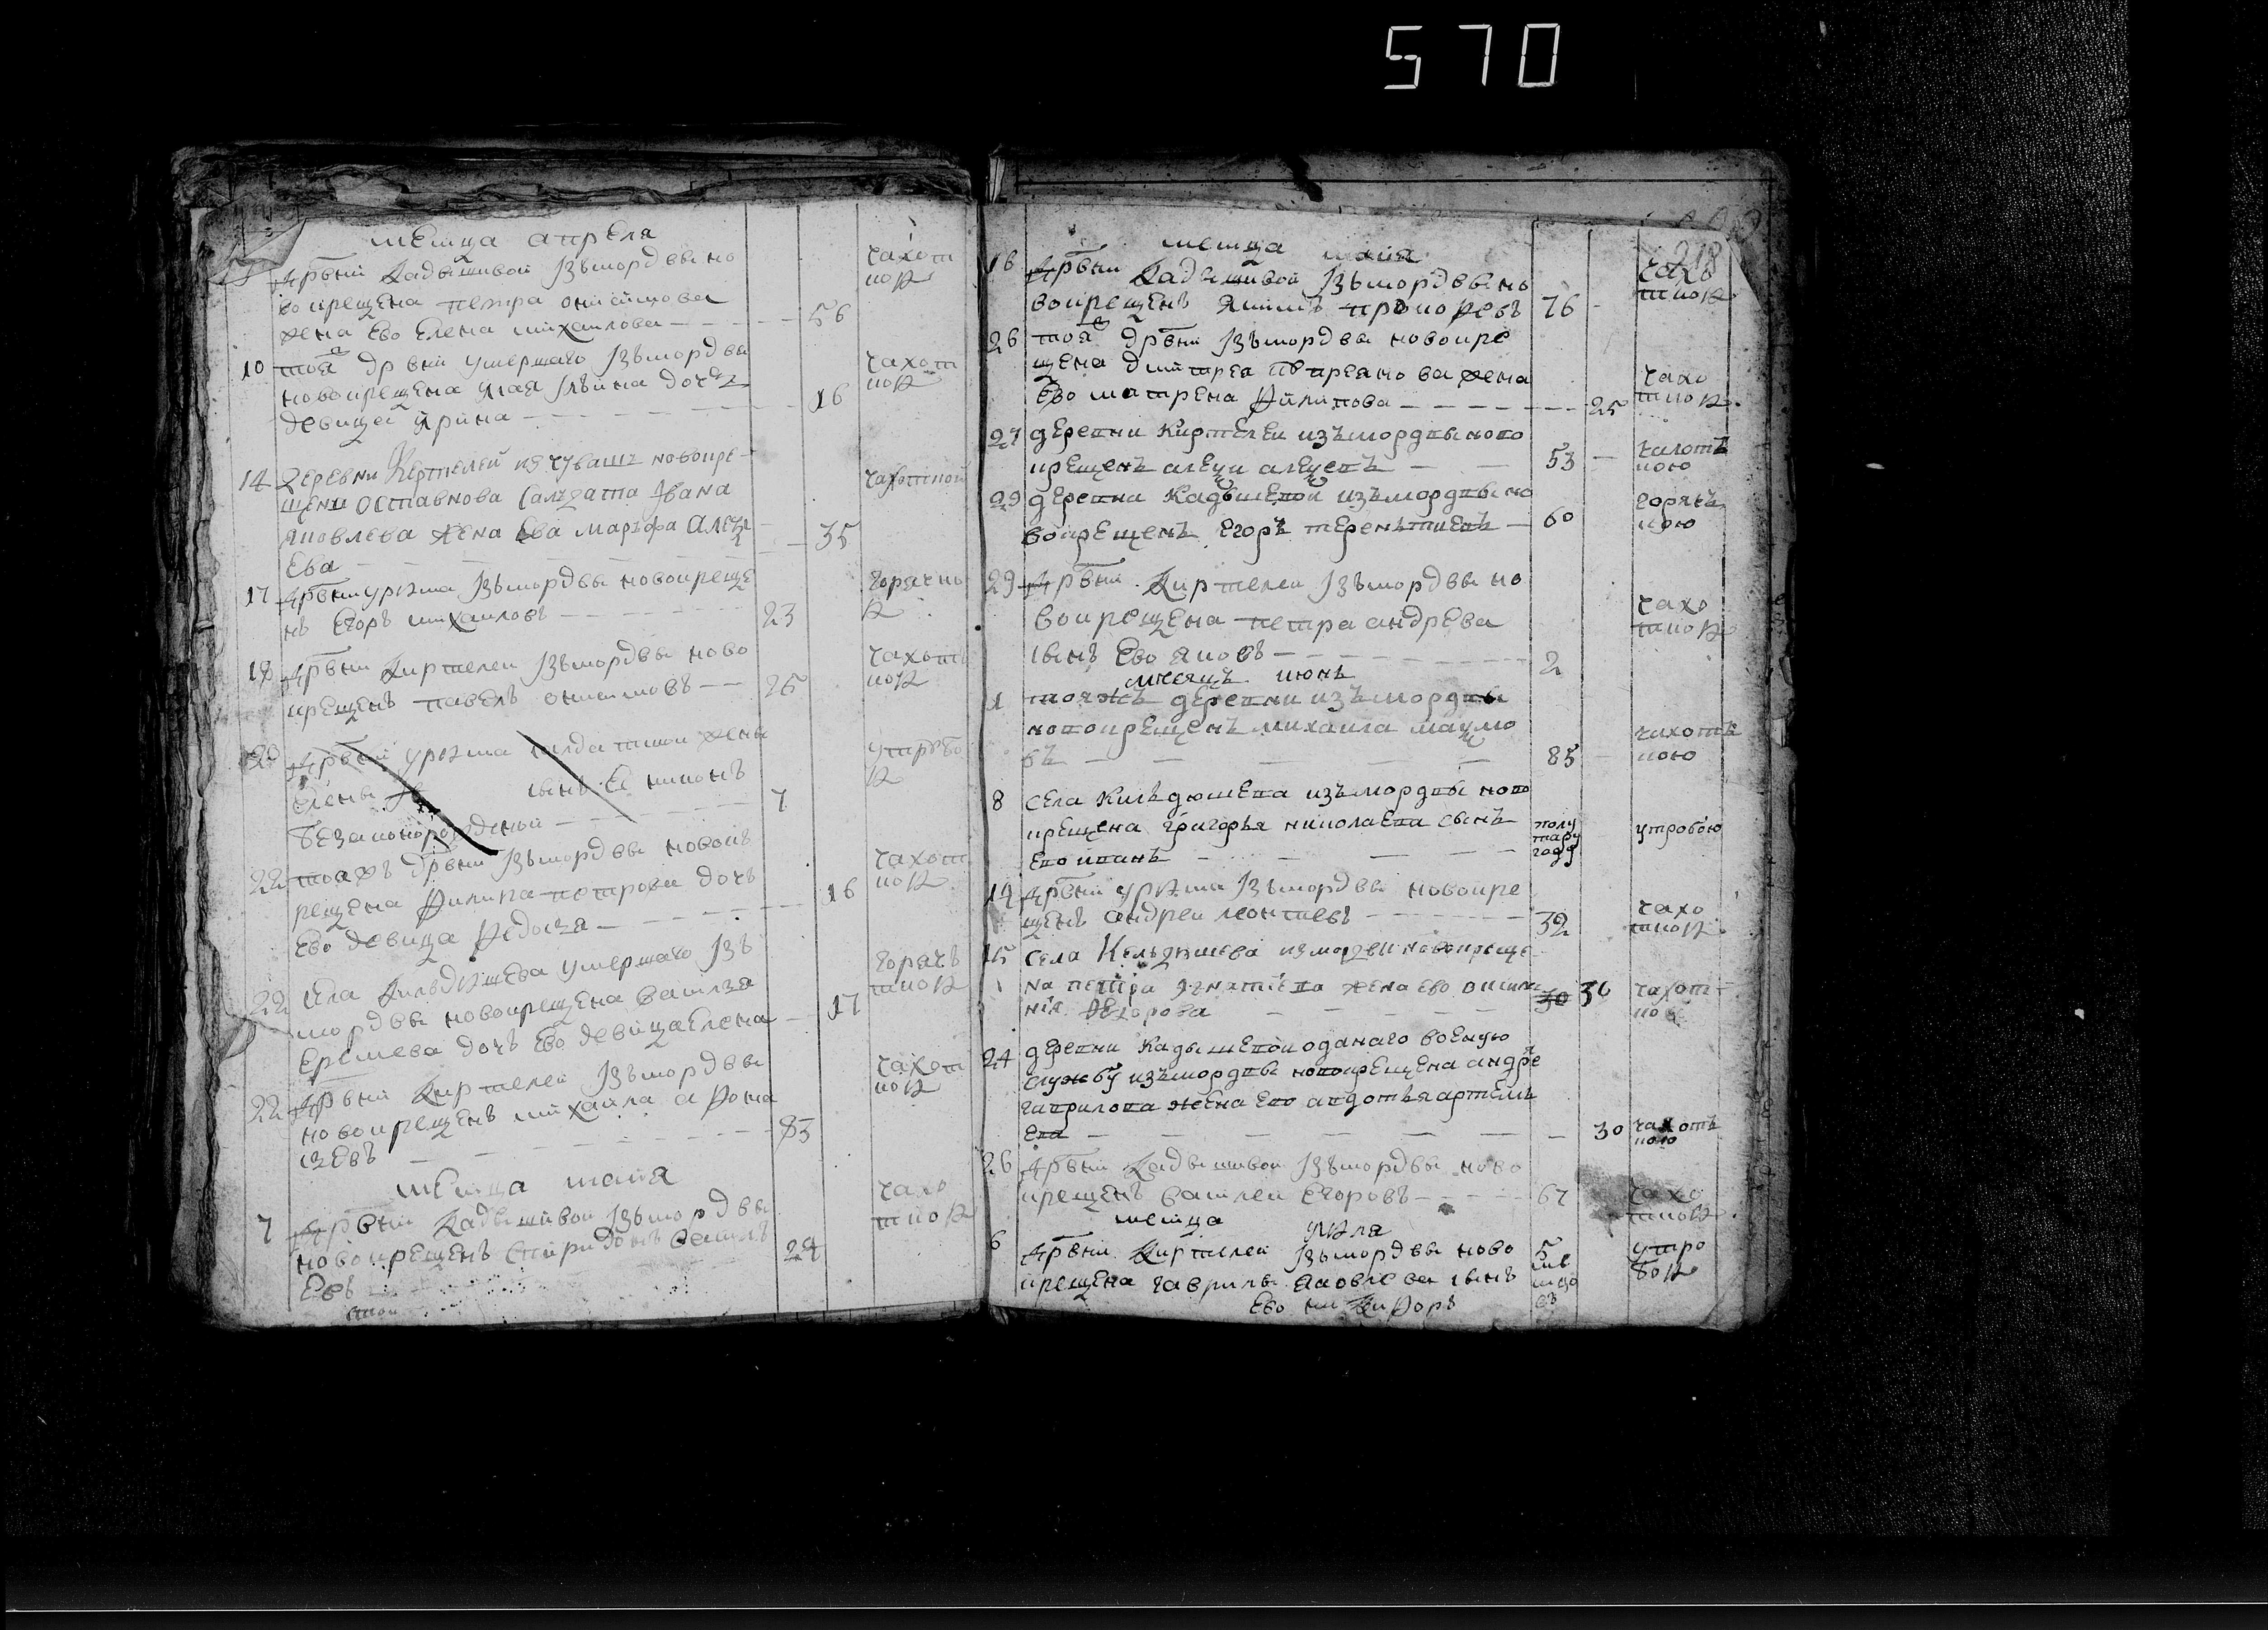 570
218
месяца апреля
дрвни Кадышивой Iзъ мордвы но
вокрещена петра онисимова
жена Ево Елена михаилова — 56
чахот
кою
10 тоя дрвни умершаго Iзъ мордвы
новокрещена
девица Ирина — 16
чахот
кою
14 Деревни Киртелей из чувашъ новокре-
щенъ Салдата Iвана
яковлева жена Ева марфа Алеѯ
Ева — 35
чахоткой
17 дрвни урюма Iзъ мордвы новокреще
нъ Егоръ михаиловъ — 23
горячко
ю
18 дрвни Киртелеи Iзъ мордвы ново
крещенъ павелъ онисимовъ — 25
чахотъ
кою
20 дрвни урюма салдатской жены
Елены сынъ Ея никонъ
беззаконорожденой — 7
утробо
ю
22 тояжъ дрвни Iзъ мордвы новокъ
рещена Филипа петрова дочь
Ево девица Федосья — 16
чахот
кою
22 Села Кильдюшева умершаго Iзъ
мордвы новокрещена василья
Еремеева дочь Ево девица Елена — 17
горячъ
кою
22 дрвни Киртелеи Iзъ мордвы
новокрещенъ михаила афона
сьевъ — 83
чахот
кою
месяца маия
7 дрвни Кадышивой Iзъ мордвы
новокрещенъ спиридонъ василь
Евъ — 24
чахо
ткою
месяца маия
16 дрвни Кадышивой Iзъ мордвы но
вокрещенъ якимъ прокоревъ 76
чахо
ткою
26 тоя дрвни Iзъ мордвы новокре
щена дмитрея киприянова жена
Ево матрена Филипова — 25
чахо
ткою
27 деревни Киртелеи изъ мордвы ново
крещенъ алеѯи алеѯевъ — 53
чахотъ
кою
29 деревни Кадышевой изъ мордвы но
вокрещенъ Егоръ терентиевъ — 60
горячъ
кою
29 дрвни Киртелеи Iзъ мордвы но
вокрещена петра андрева
сынъ Ево яковъ — 2
чахо
ткою
месяцъ июнь
1 тояжъ деревни изъ мордвы
новокрещенъ михаила маѯимо
въ — 85
чахотъ
кою
8 села Кильдюшева изъ мордвы ново
крещена григорья николаева сынъ
Ево иванъ — полу
тару
году
утробою
14 дрвни урюма Iзъ мордвы новокре
щенъ андреи леонтиевъ — 32
чахо
ткою
15 села Кельдюшева из мордвы новокреще-
на петра Iгнатиева жена ево
Федорова — 30 36
чахот-
ко
24 деревни Кадышевой оданаго воЕную
службу изъ мордвы новокрещена андре
гаврилова жена Ево авдотья артемь
Ева — 30
чахотъ
кою
26 дрвни Кадышивой Iзъ мордвы ново
крещенъ василеи Егоровъ — 67
чахо
ткою
месяца июля
6 дрвни Киртелеи Iзъ мордвы ново
крещена гаврилы яковлева сынъ
Ево никифоръ
5
утро
бою